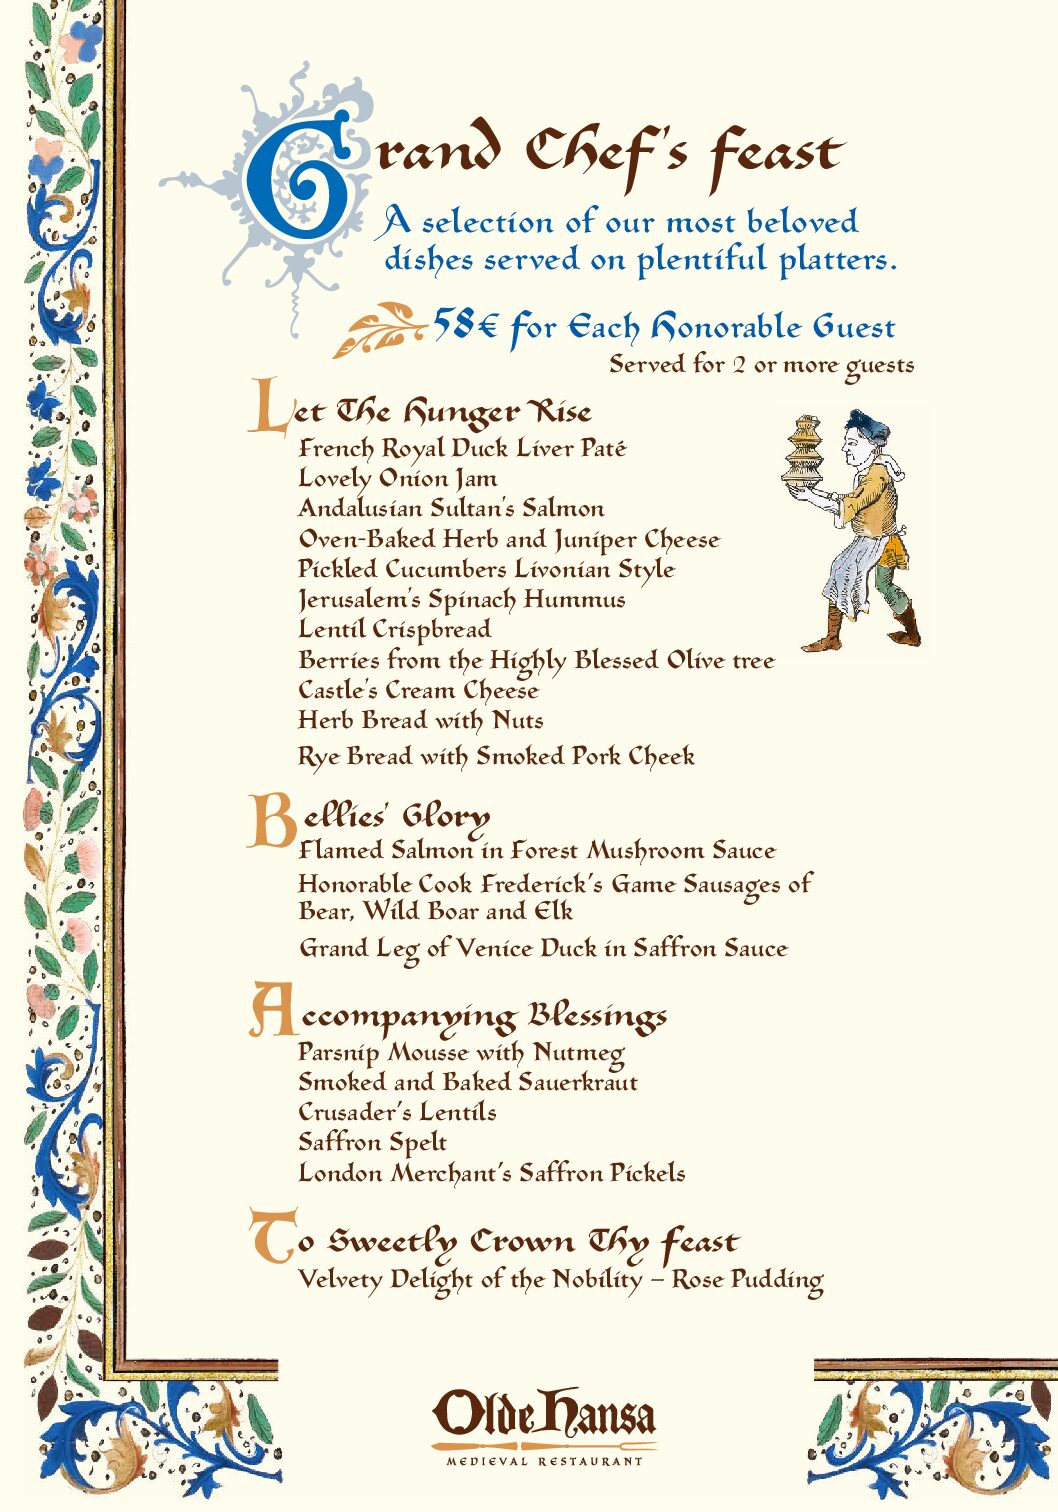 Grand Chef's feast
A selection of our most beloved
dishes served on plentiful platters.
58€ for Each Honorable Guest
Served for 2 or more guests
Let The Hunger Rise
French Royal Duck Liver Paté
Lovely Onion Jam
Andalusian Sultan's Salmon
Oven-Baked Herb and Juniper Cheese
Pickled Cucumbers Livonian Style
Jerusalem's Spinach Hummus
Lentil Crispbread
Berries from the Highly Blessed Olive tree
Castle's Cream Cheese
Herb Bread with Nuts
Rye Bread with Smoked Pork Cheek
Bellies' Glory
Flamed Salmon in Forest Mushroom Sauce
Honorable Cook Frederick's Game Sausages of
Bear, Wild Boar and Elk
Grand Leg of Venice Duck in Saffron Sauce
Accompanying Blessings
Parsnip Mousse with Nutmeg
Smoked and Baked Sauerkraut
Crusader's Lentils
Saffron Spelt
London Merchant's Saffron Pickels
To Sweetly Crown Thy feast
Velvety Delight of the Nobility – Rose Pudding
Olde Hansa
MEDIEVAL RESTAURANT